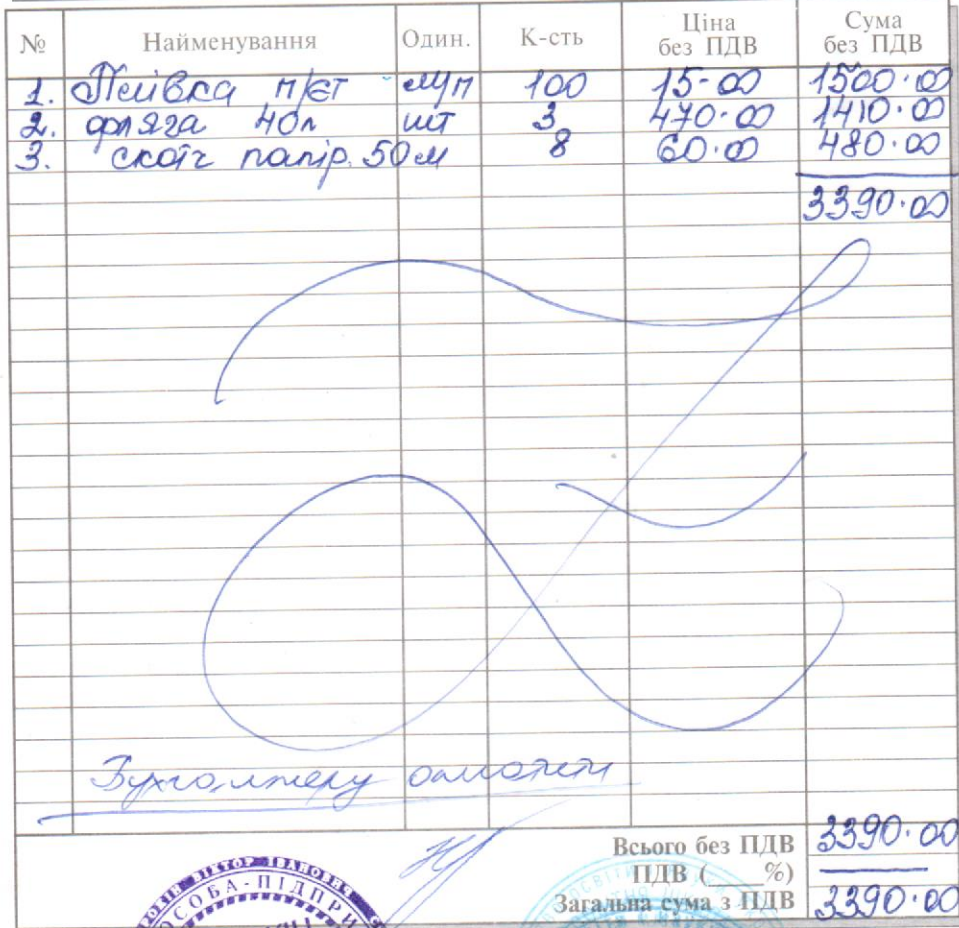 № Найменування Один. К-сть Ціна без ПДВ Сума без ПДВ
1. Плівка п/єт м/п 100 15-00 1500.00
2. фляга 40л шт 3 470.00 1410.00
3. скотч папір. 50м 8 60.00 480.00
3390.00
Бухгалтеру оплатити
Всього без ПДВ 3390.00
ПДВ (____%) —
Загальна сума з ПДВ 3390.00
ВІКТОР ІВАНОВИЧ
ОСОБА-ПІДПРИ